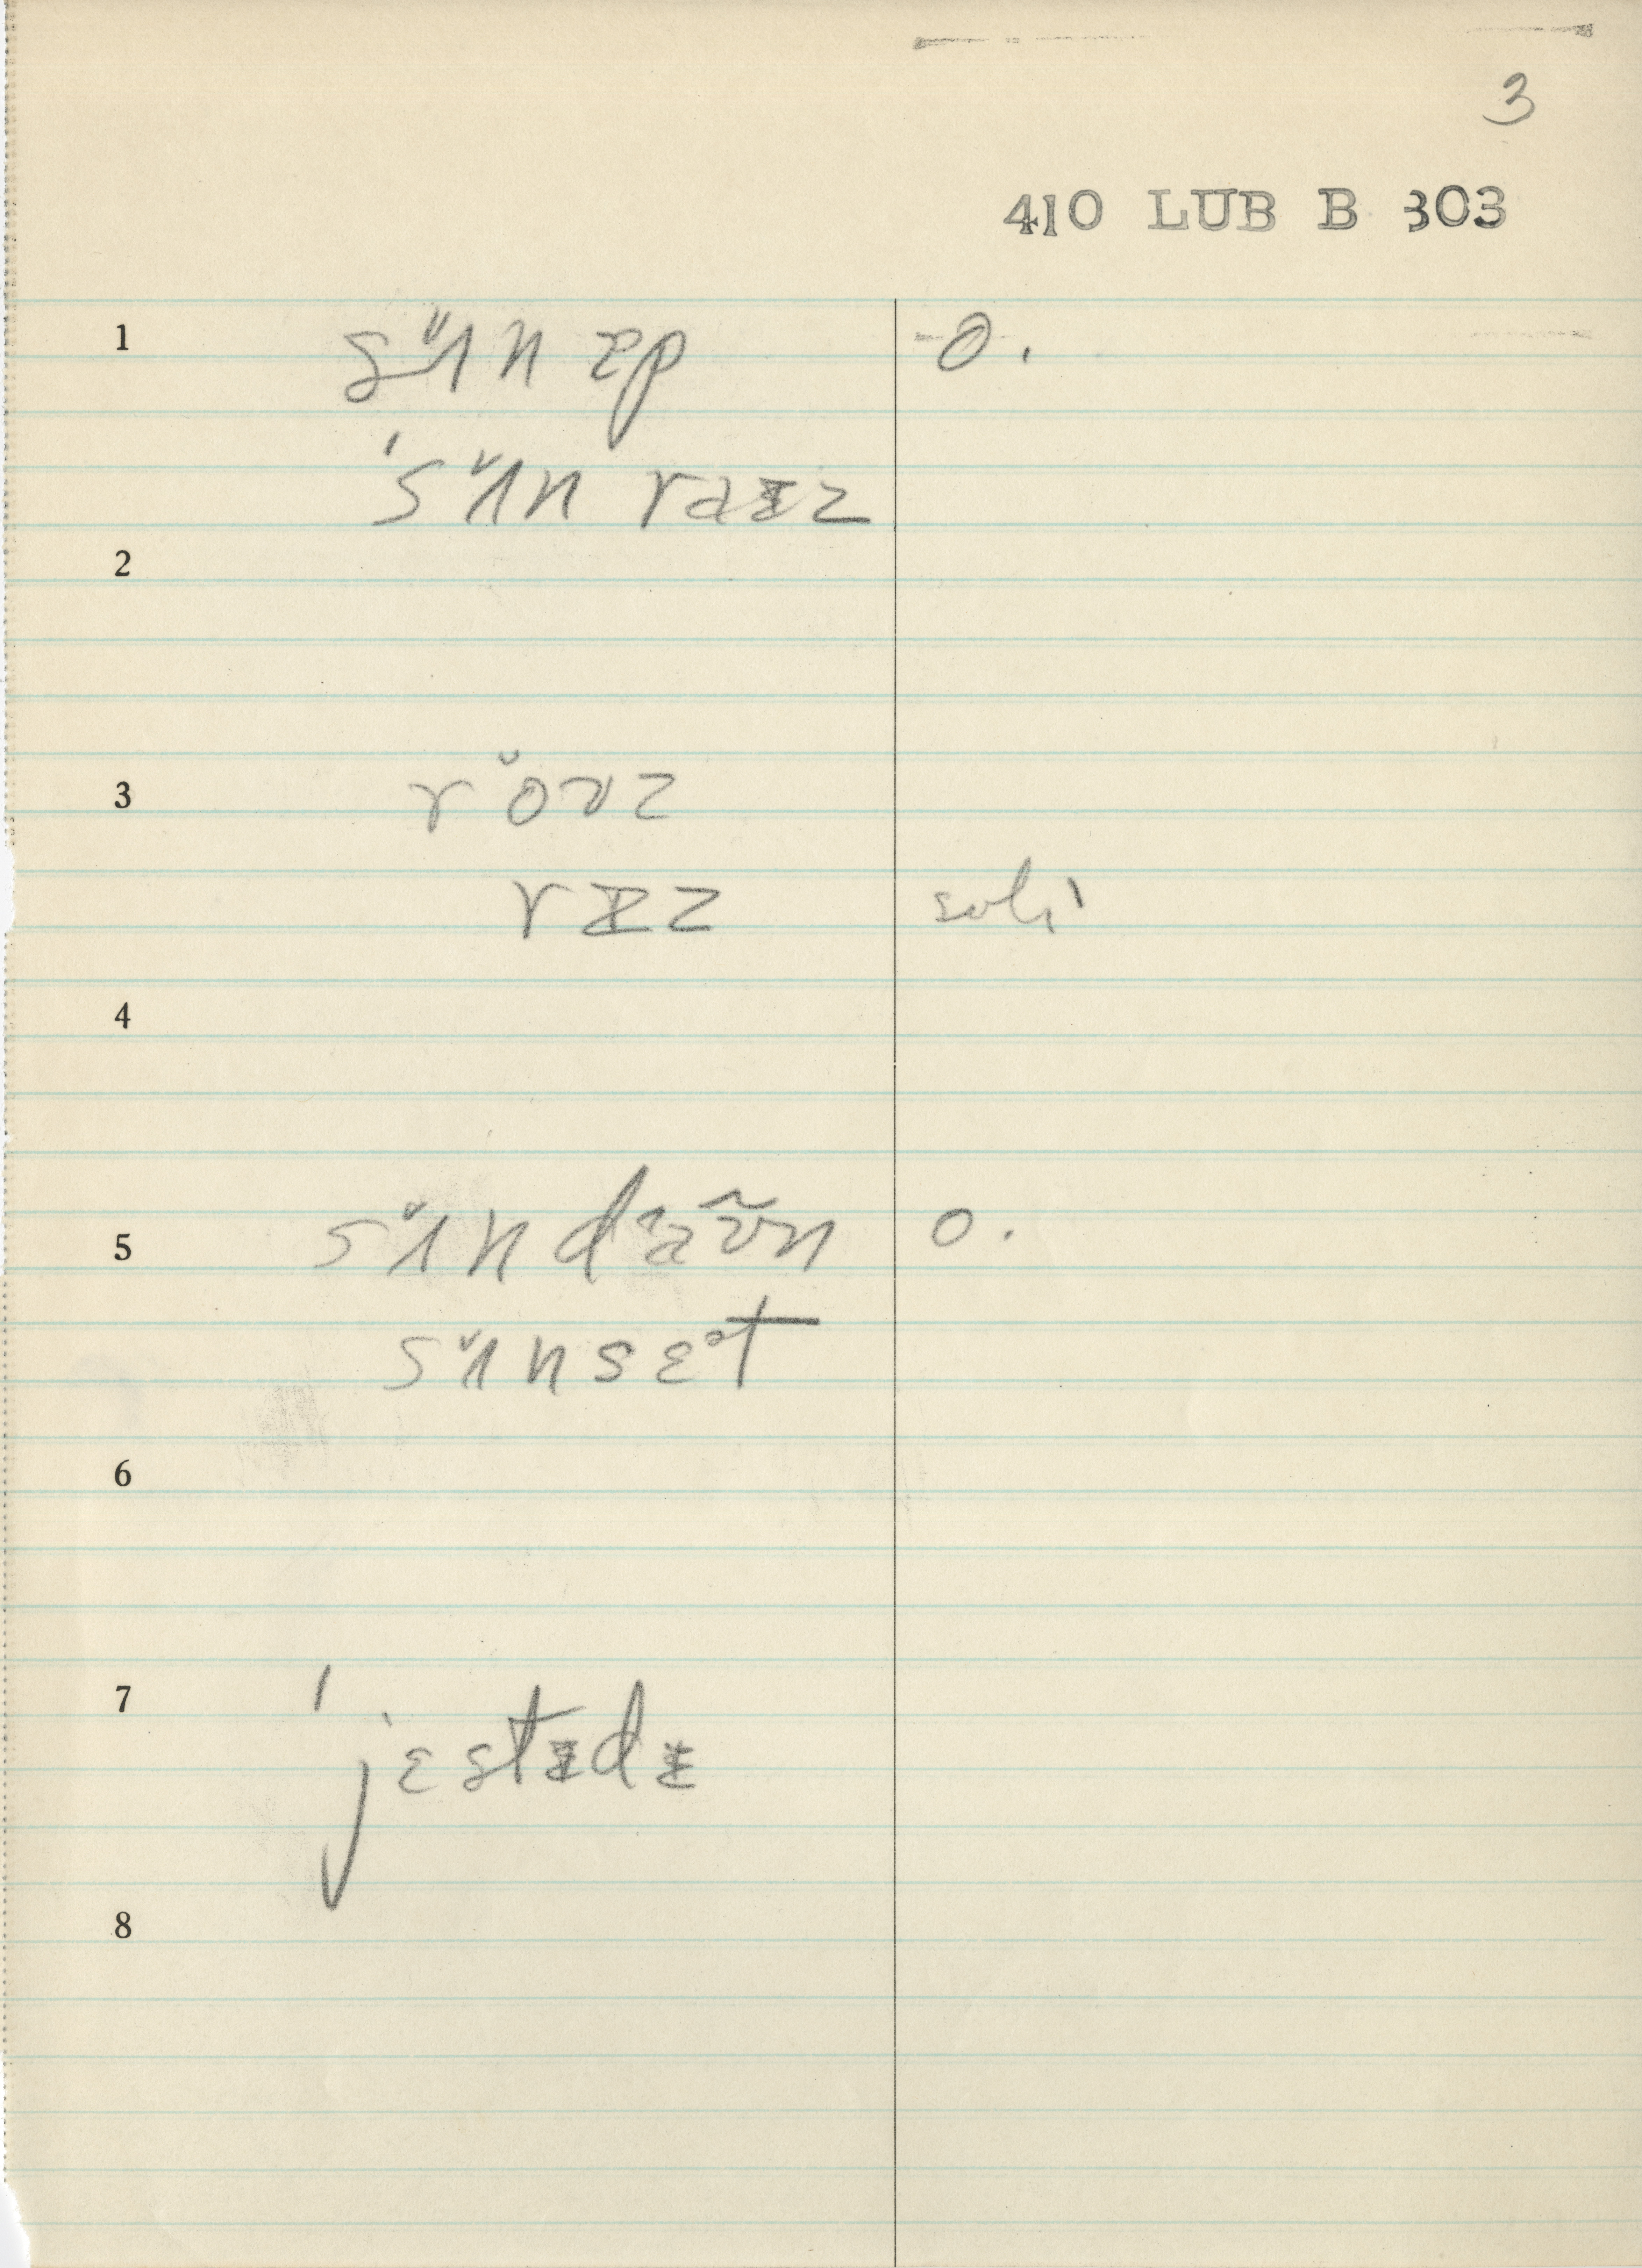 3
410 LUB B 303
1 sʌ̆n ɐp o.
'sʌ̆n raɪz
2
3 rŏʊz
rɪz
4
5 sʌ̆n daʊ̃n o.
sʌ̆nsɛᵊt
6
7 'jɛstɪdɪ
8